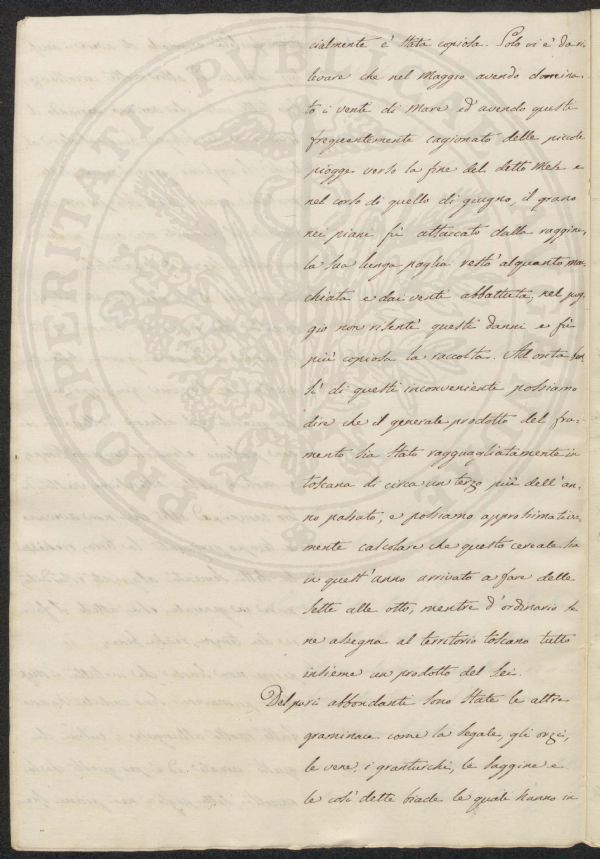 cialmente è stata copiosa. Solo vi è da ri-
levare che nel Maggio avendo domina-
to i venti di Mare ed avendo questi
frequentemente cagionato delle piccole
piogge verso la fine del detto Mese e
nel corso di quello di giugno, il grano
nei piani fù attaccato dalla raggine,
la sua lunga paglia restò alquanto mac-
chiata e dai venti abbattuta, nel pog-
gio non risentè questi danni e fù
più copiosa la raccolta. Ad onta
di questi inconveniente possiamo
dire che il generale prodotto del fru-
mento ha stato ragguagliatamente in
toscana di circa un terzo più dell'an-
no passato, e possiamo approssimativa-
mente calcolare che questo cereale ha
in quest'anno arrivato a fare delle
sette alle otto, mentre d'ordinario se
ne assegna al territorio toscano tutto
insieme un prodotto del sei.
Del pari abbondanti sono state le altre
graminace come la segale, gli orzi,
le vene, i granturchi, le saggine e
le così dette biade le quali hanno in
PROSPERITATI PUBLICAE